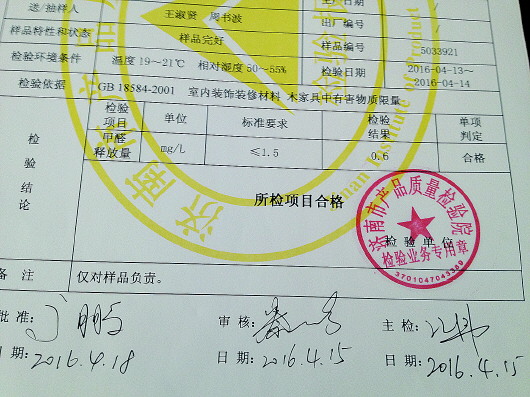 送/抽样人 王淑贤 周书波 生产日期 /
出厂编号 /
样品特性和状态 样品完好 样品编号 5033921
检验环境条件 温度 19~21℃ 相对湿度 50~55% 检验日期 2016-04-13~
2016-04-14
检验依据 GB 18584-2001 室内装饰装修材料 木家具中有害物质限量
检验项目 单位 标准要求 检验结果 单项判定
甲醛释放量 mg/L ≤1.5 0.6 合格
检验结论
所检项目合格
济南市产品质量检验院
检验单位
检验业务专用章
3701047043389
备 注 仅对样品负责。
批准: 审核: 主检:
日期: 2016.4.18 日期: 2016.4.15 日期: 2016.4.15
Jinan Institute of Product